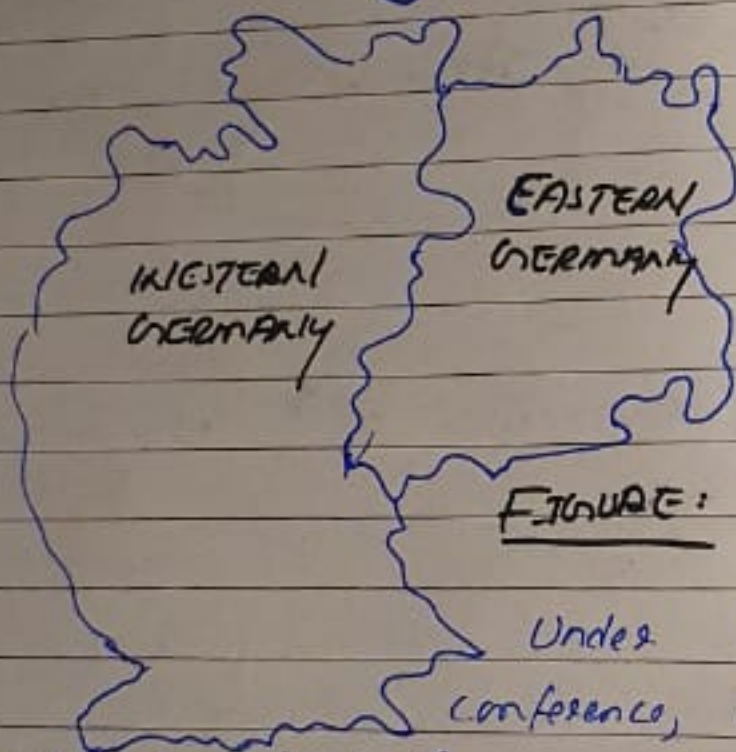 WESTERN
GERMANY
EASTERN
GERMANY
FIGURE:
Under
conference,